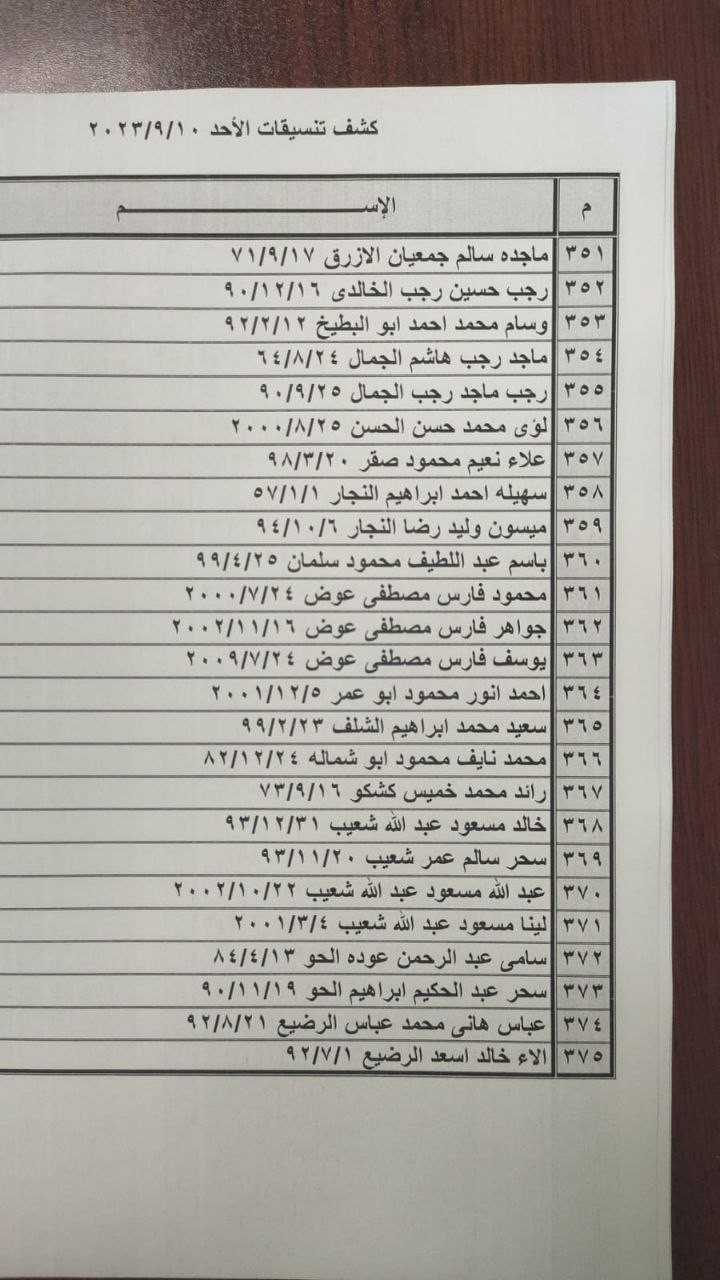 كشف تنسيقات الأحد ٢٠٢٣/٩/١٠
م الإســـــــــــــــــم
٣٥١ ماجده سالم جمعيان الازرق ٧١/٩/١٧
٣٥٢ رجب حسين رجب الخالدى ٩٠/١٢/١٦
٣٥٣ وسام محمد احمد ابو البطيخ ٩٢/٢/١٢
٣٥٤ ماجد رجب هاشم الجمال ٦٤/٨/٢٤
٣٥٥ رجب ماجد رجب الجمال ٩٠/٩/٢٥
٣٥٦ لؤى محمد حسن الحسن ٢٠٠٠/٨/٢٥
٣٥٧ علاء نعيم محمود صقر ٩٨/٣/٢٠
٣٥٨ سهيله احمد ابراهيم النجار ٥٧/١/١
٣٥٩ ميسون وليد رضا النجار ٩٤/١٠/٦
٣٦٠ باسم عبد اللطيف محمود سلمان ٩٩/٤/٢٥
٣٦١ محمود فارس مصطفى عوض ٢٠٠٠/٧/٢٤
٣٦٢ جواهر فارس مصطفى عوض ٢٠٠٢/١١/١٦
٣٦٣ يوسف فارس مصطفى عوض ٢٠٠٩/٧/٢٤
٣٦٤ احمد انور محمود ابو عمر ٢٠٠١/١٢/٥
٣٦٥ سعيد محمد ابراهيم الشلف ٩٩/٢/٢٣
٣٦٦ محمد نايف محمود ابو شماله ٨٢/١٢/٢٤
٣٦٧ رائد محمد خميس كشكو ٧٣/٩/١٦
٣٦٨ خالد مسعود عبد الله شعيب ٩٣/١٢/٣١
٣٦٩ سحر سالم عمر شعيب ٩٣/١١/٢٠
٣٧٠ عبد الله مسعود عبد الله شعيب ٢٠٠٢/١٠/٢٢
٣٧١ لينا مسعود عبد الله شعيب ٢٠٠١/٣/٤
٣٧٢ سامى عبد الرحمن عوده الحو ٨٤/٤/١٣
٣٧٣ سحر عبد الحكيم ابراهيم الحو ٩٠/١١/١٩
٣٧٤ عباس هانى محمد عباس الرضيع ٩٢/٨/٢١
٣٧٥ الاء خالد اسعد الرضيع ٩٢/٧/١